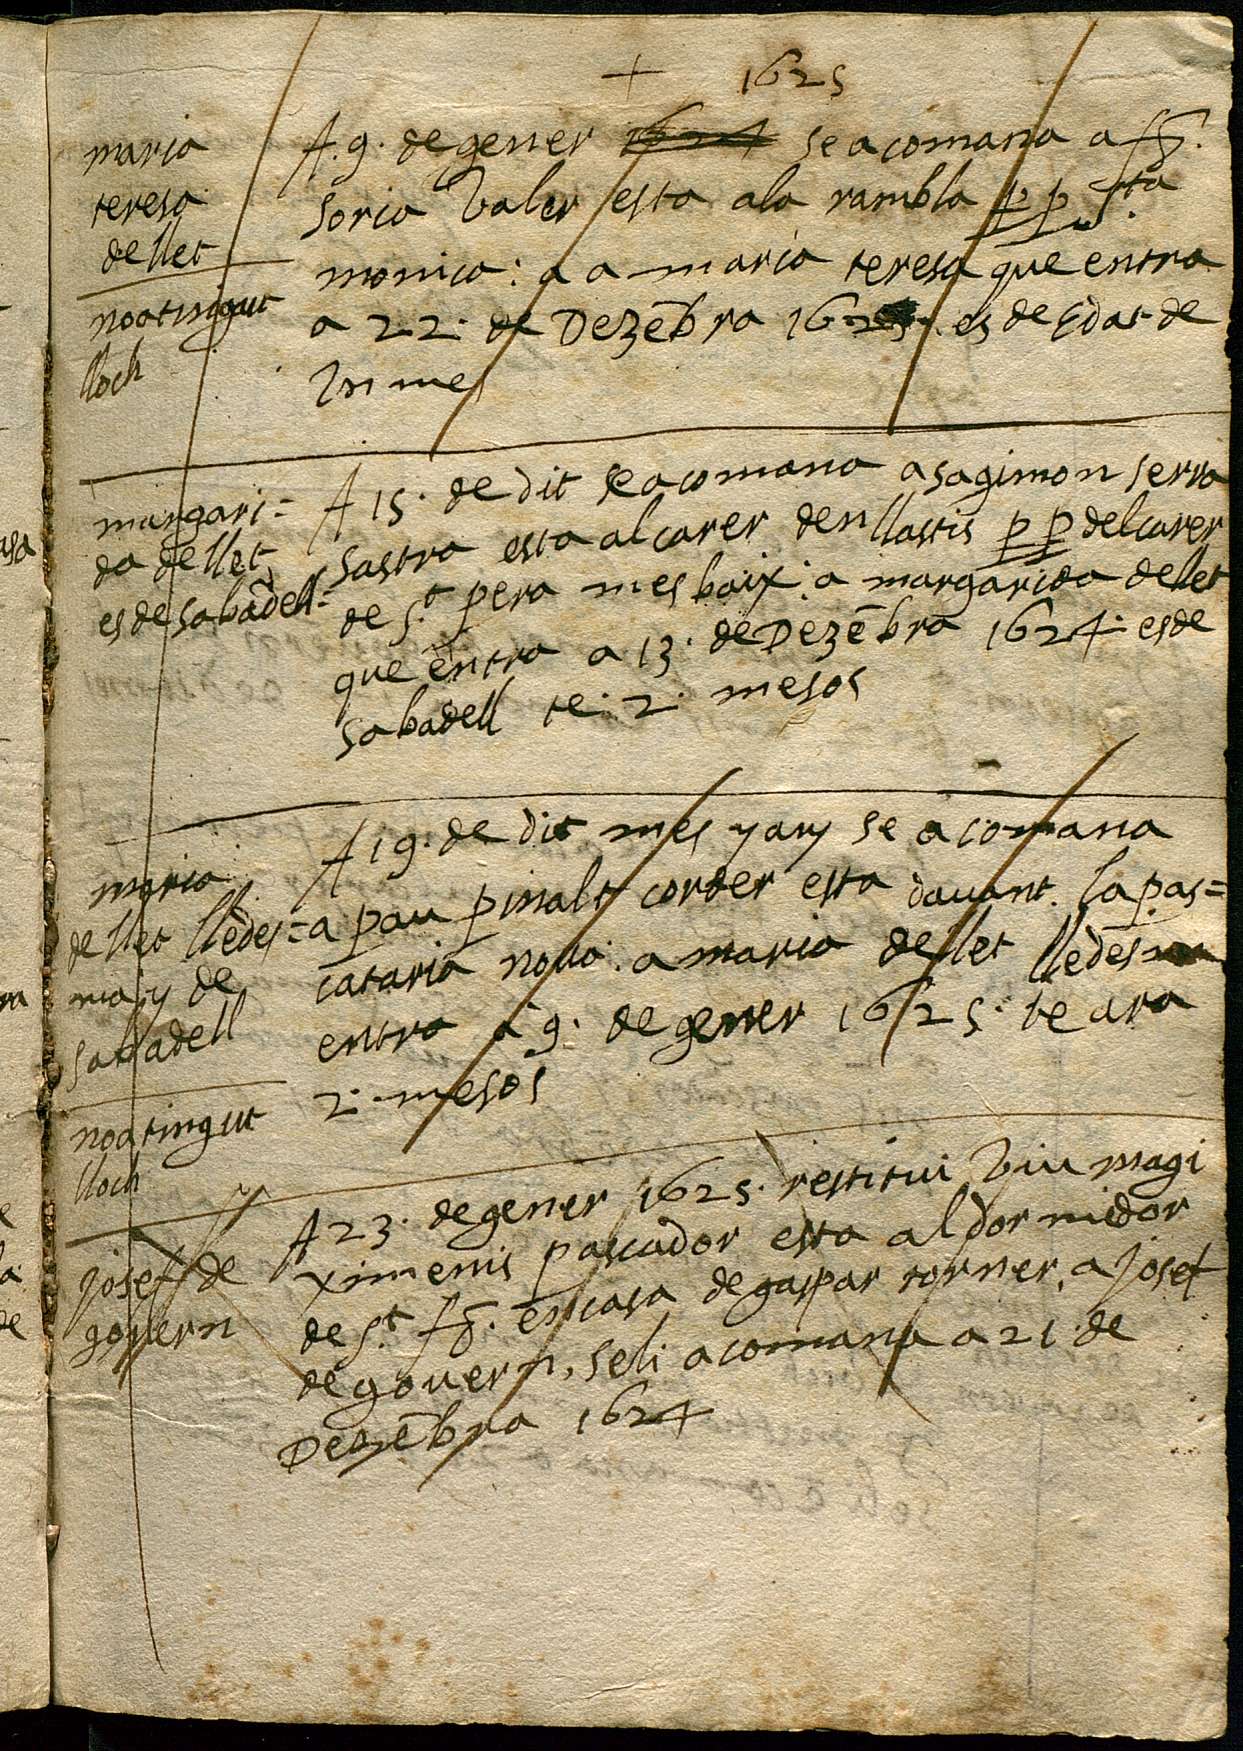 + 1625
maria
teresa
de llet
noatingut
lloch
A. 9. de gener 1624 se acomana a fr̃.
soria Valer esta ala rambla p̱ p̱ sta
monica: a a maria teresa que entra
a 22. de Dezẽbra 1625. es de edat de
Vn mes
margari=
da de llet
es de sabadell=
A 15. de dit se acomana a sagimon serra
sastra esta al carer den llastis p̱ p̱ del carer
de St pera mes baix: a margarida de llet
que entra a 13. de Dezẽbra 1624. es de
sabadell te. 2. mesos
maria
de llet lledes=
ma y de
sabadell
noatingut
lloch
A 19. de dit mes y any se acomana
a pau pinalt corder esta dauant. la pas=
cataria noua. a maria de llet lledesma
entra a 9. de gener 1625. te ara
2. mesos
Josef de
govern
A 23. de gener 1625. restitui Viu magi
ximenis pascador esta al dormidor
de St fr̃. en casa de gaspar torner, a Josef
de govern, seli acomana a 21 de
Dezẽbra 1624